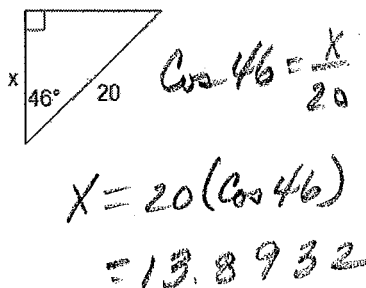 x
46°
20
Cos 46 = x/20
X = 20(Cos 46)
= 13.8932